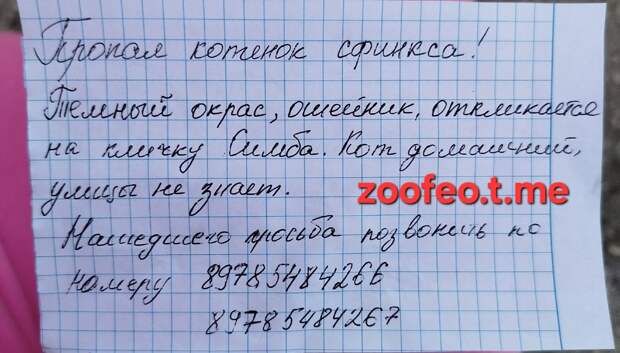 Пропал котенок сфинкса!
Темный окрас, ошейник, откликается
на кличку Симба. Кот домашний,
улицы не знает.
zoofeo.t.me
Нашедшего просьба позвонить по
номеру 89785484266
89785484267